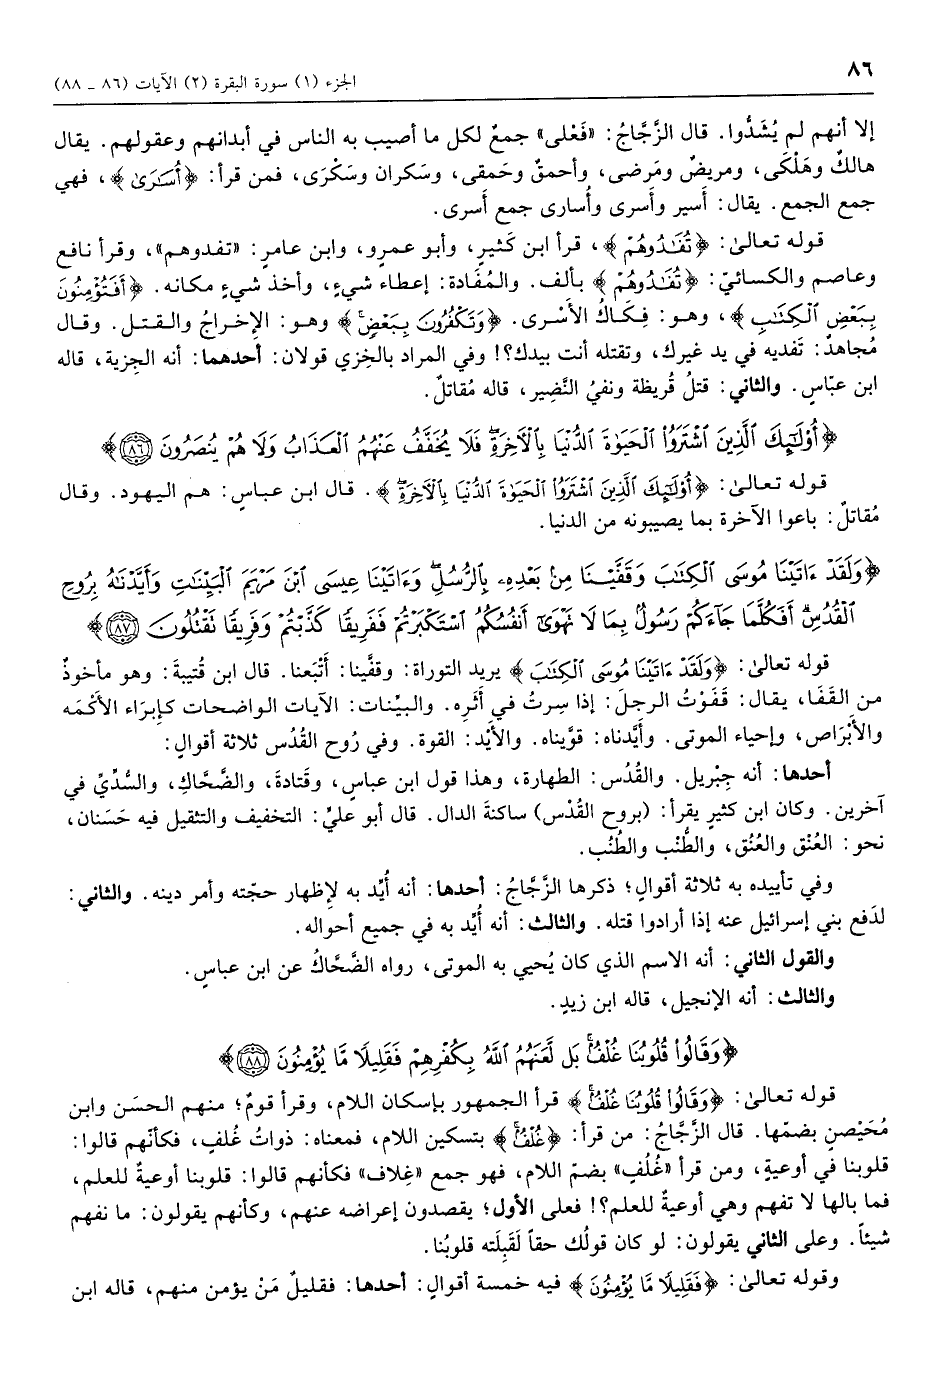 ٨٦
الجزء (١) سورة البقرة (٢) الآيات (٨٦ ـ ٨٨)
إلا أنهم لم يُشَدُّوا. قال الزَّجَّاجُ: «فَعْلى» جمعٌ لكل ما أصيب به الناس في أبدانهم وعقولهم. يقال
هالكٌ وهَلْكَى، ومريضٌ ومَرضى، وأحمقٌ وحَمقى، وسَكران وسَكْرَى، فمن قرأ: ﴿أُسَـٰرَىٰ﴾، فهي
جمع الجمع. يقال: أَسير وأَسرى وأُسارى جمع أَسرى.
قوله تعالىٰ: ﴿تُفَـٰدُوهُمْ﴾، قرأ ابن كَثيرٍ، وأبو عمرو، وابن عامرٍ: «تفدوهم»، وقرأ نافع
وعاصم والكسائيّ: ﴿تُفَـٰدُوهُمْ﴾ بألف. والمُفادة: إعطاء شيءٍ، وأخذ شيءٍ مكانه. ﴿أَفَتُؤْمِنُونَ
بِبَعْضِ ٱلْكِتَـٰبِ﴾، وهو: فِكَاكُ الأَسْرى. ﴿وَتَكْفُرُونَ بِبَعْضٍ﴾ وهو: الإخراجُ والقـتـل. وقـال
مُجاهدٌ: تَفديه في يد غيرك، وتقتله أنت بيدك؟! وفي المراد بالخِزي قولان: أحدهما: أنه الجِزية، قاله
ابن عبّاسٍ. والثاني: قتلُ قُريظة ونفيُ النَّضِير، قاله مُقاتلٌ.
﴿أُوْلَـٰٓئِكَ ٱلَّذِينَ ٱشْتَرَوُا۟ ٱلْحَيَوٰةَ ٱلدُّنْيَا بِٱلْـَٔاخِرَةِ ۖ فَلَا يُخَفَّفُ عَنْهُمُ ٱلْعَذَابُ وَلَا هُمْ يُنصَرُونَ ٨٦﴾
قوله تعالىٰ: ﴿أُوْلَـٰٓئِكَ ٱلَّذِينَ ٱشْتَرَوُا۟ ٱلْحَيَوٰةَ ٱلدُّنْيَا بِٱلْـَٔاخِرَةِ ۖ﴾. قال ابن عباسٍ: هم اليهود. وقال
مُقاتلٌ: باعوا الآخرة بما يصيبونه من الدنيا.
﴿وَلَقَدْ ءَاتَيْنَا مُوسَى ٱلْكِتَـٰبَ وَقَفَّيْنَا مِنۢ بَعْدِهِۦ بِٱلرُّسُلِ ۖ وَءَاتَيْنَا عِيسَى ٱبْنَ مَرْيَمَ ٱلْبَيِّنَـٰتِ وَأَيَّدْنَـٰهُ بِرُوحِ
ٱلْقُدُسِ ۗ أَفَكُلَّمَا جَآءَكُمْ رَسُولٌۢ بِمَا لَا تَهْوَىٰٓ أَنفُسُكُمُ ٱسْتَكْبَرْتُمْ فَفَرِيقًا كَذَّبْتُمْ وَفَرِيقًا تَقْتُلُونَ ٨٧﴾
قوله تعالىٰ: ﴿وَلَقَدْ ءَاتَيْنَا مُوسَى ٱلْكِتَـٰبَ﴾ يريد التوراة: وقفَّينا: أَتْبَعنا. قال ابن قُتيبةَ: وهو مأخوذٌ
من القَفَا، يقال: قَفَوْتُ الرجلَ: إذا سِرتُ في أَثَرِه. والبيِّنات: الآيات الواضحات كإبراء الأَكْمَه
والأَبْرَاص، وإحياء الموتى. وأَيَّدناه: قوَّيناه. والأَيْد: القوة. وفي رُوح القُدُس ثلاثة أقوالٍ:
أحدها: أنه جِبْريل. والقُدُس: الطهارة، وهذا قول ابن عباسٍ، وقَتادةَ، والضَّحَّاكِ، والسُّدِّيِّ في
آخرين. وكان ابن كثيرٍ يقرأ: (بروح القُدْس) ساكنةَ الدال. قال أبو عليٍّ: التخفيف والتثقيل فيه حَسَنان،
نحو: العُنْق والعُنُق، والطُّنْب والطُنُب.
وفي تأييده به ثلاثة أقوالٍ؛ ذكرها الزَّجَّاجُ: أحدها: أنه أُيِّد به لإظهار حجّته وأمر دينه. والثاني:
لدَفع بني إسرائيل عنه إذا أرادوا قتله. والثالث: أنه أُيِّد به في جميع أحواله.
والقول الثاني: أنه الاسم الذي كان يُحيي به الموتى، رواه الضَّحَّاكُ عن ابن عباسٍ.
والثالث: أنه الإنجيل، قاله ابن زيدٍ.
﴿وَقَالُوا۟ قُلُوبُنَا غُلْفٌۢ ۚ بَل لَّعَنَهُمُ ٱللَّهُ بِكُفْرِهِمْ فَقَلِيلًا مَّا يُؤْمِنُونَ ٨٨﴾
قوله تعالىٰ: ﴿وَقَالُوا۟ قُلُوبُنَا غُلْفٌۢ ۚ﴾ قرأ الجمهور بإسكان اللام، وقرأ قومٌ؛ منهم الحسَن وابن
مُحَيْصنٍ بضمّها. قال الزَّجَّاجُ: من قرأ: ﴿غُلْفٌۢ ۚ﴾ بتسكين اللام، فمعناه: ذواتُ غُلفٍ، فكأنّهم قالوا:
قلوبنا في أوعيةٍ، ومن قرأ «غُلُفٍ» بضمّ اللام، فهو جمع «غِلاف» فكأنهم قالوا: قلوبنا أوعيةٌ للعلم،
فما بالها لا تفهم وهي أوعيةٌ للعلم؟! فعلى الأول؛ يقصدون إعراضه عنهم، وكأنهم يقولون: ما نفهم
شيئاً. وعلى الثاني يقولون: لو كان قولُك حقاً لَقَبِلَته قلوبُنا.
وقوله تعالىٰ: ﴿فَقَلِيلًا مَّا يُؤْمِنُونَ﴾ فيه خمسة أقوالٍ: أحدها: فقليلٌ مَنْ يؤمن منهم، قاله ابن